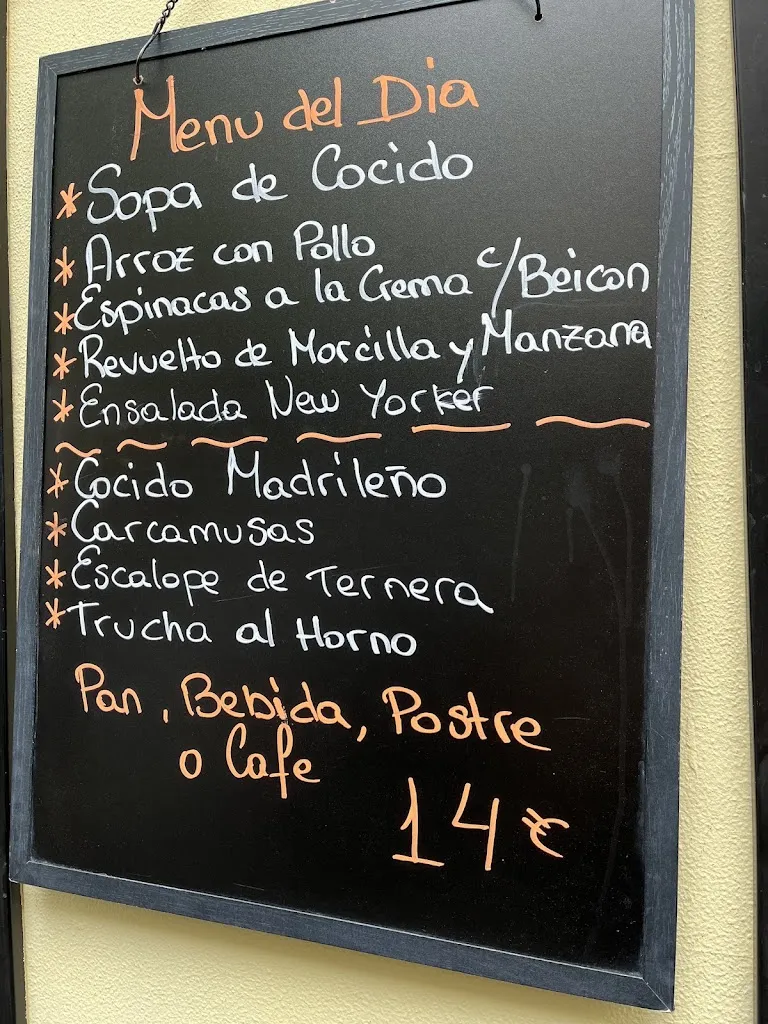 Menu del Dia
* Sopa de Cocido
* Arroz con Pollo
* Espinacas a la Crema c/Beicon
* Revuelto de Morcilla y Manzana
* Ensalada New Yorker
* Cocido Madrileño
* Carcamusas
* Escalope de Ternera
* Trucha al Horno
Pan, Bebida, Postre
o Cafe
14€